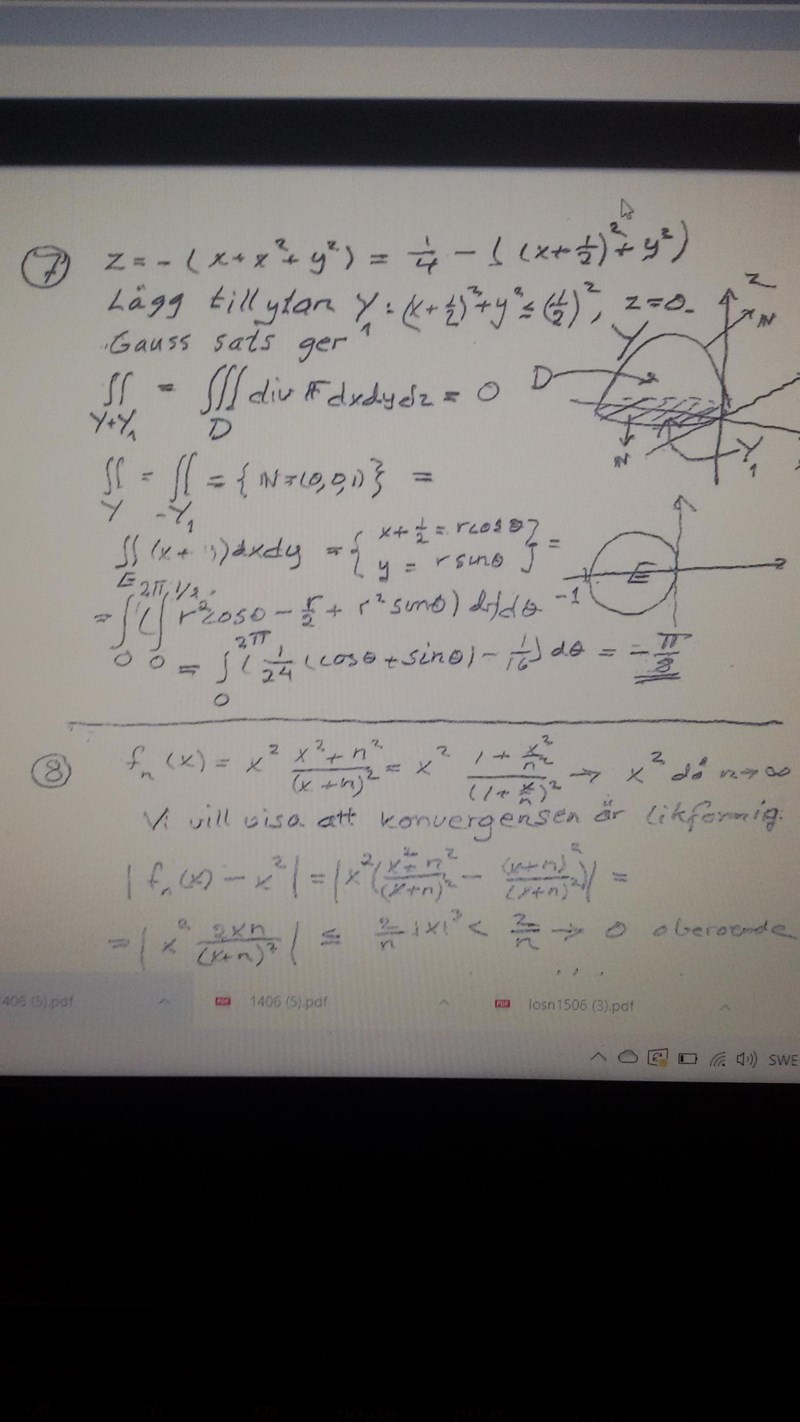 ⑦ z = -(x + x² + y²) = 1/4 - ((x + 1/2)² + y²)
Lägg till ytan Y₁: (x + 1/2)² + y² ≤ (1/2)², z = 0.
Gauss sats ger
∬_{Y+Y₁} = ∭_D div F dxdydz = 0
D Y z N
N Y₁
∬_Y = ∬_{-Y₁} = {N = (0,0,1)} =
∬_E (x + )dxdy = { x + 1/2 = r cos θ
y = r sin θ } =
-1 E
= ∫₀^{2π} (∫₀^{1/2} r² cos θ - r/2 + r² sin θ) dr) dθ
= ∫₀^{2π} (1/24 (cos θ + sin θ) - 1/16) dθ = -π/8
⑧ fₙ(x) = x² (x² + n²)/(x + n)² = x² (1 + x²/n²)/(1 + x/n)² → x² då n → ∞
Vi vill visa att konvergensen är likformig.
|fₙ(x) - x²| = |x²((x² + n²)/(x + n)² - (x + n)²/(x + n)²)| =
= |x² 2xn/(x + n)²| ≤ 2/n |x|³ < 2/n → 0 oberoende
406 (5).pdf
PDF 1406 (5).pdf
PDF losn1506 (3).pdf
SWE